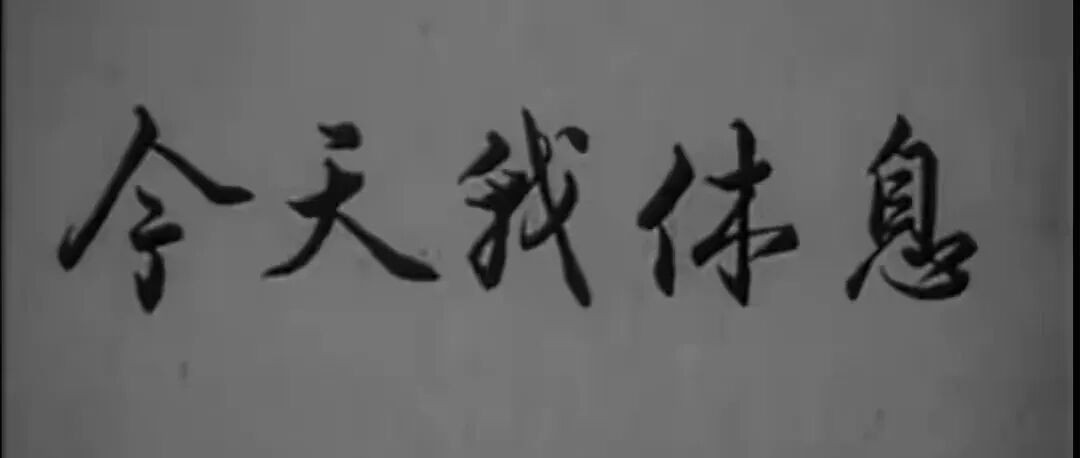 今天我休息